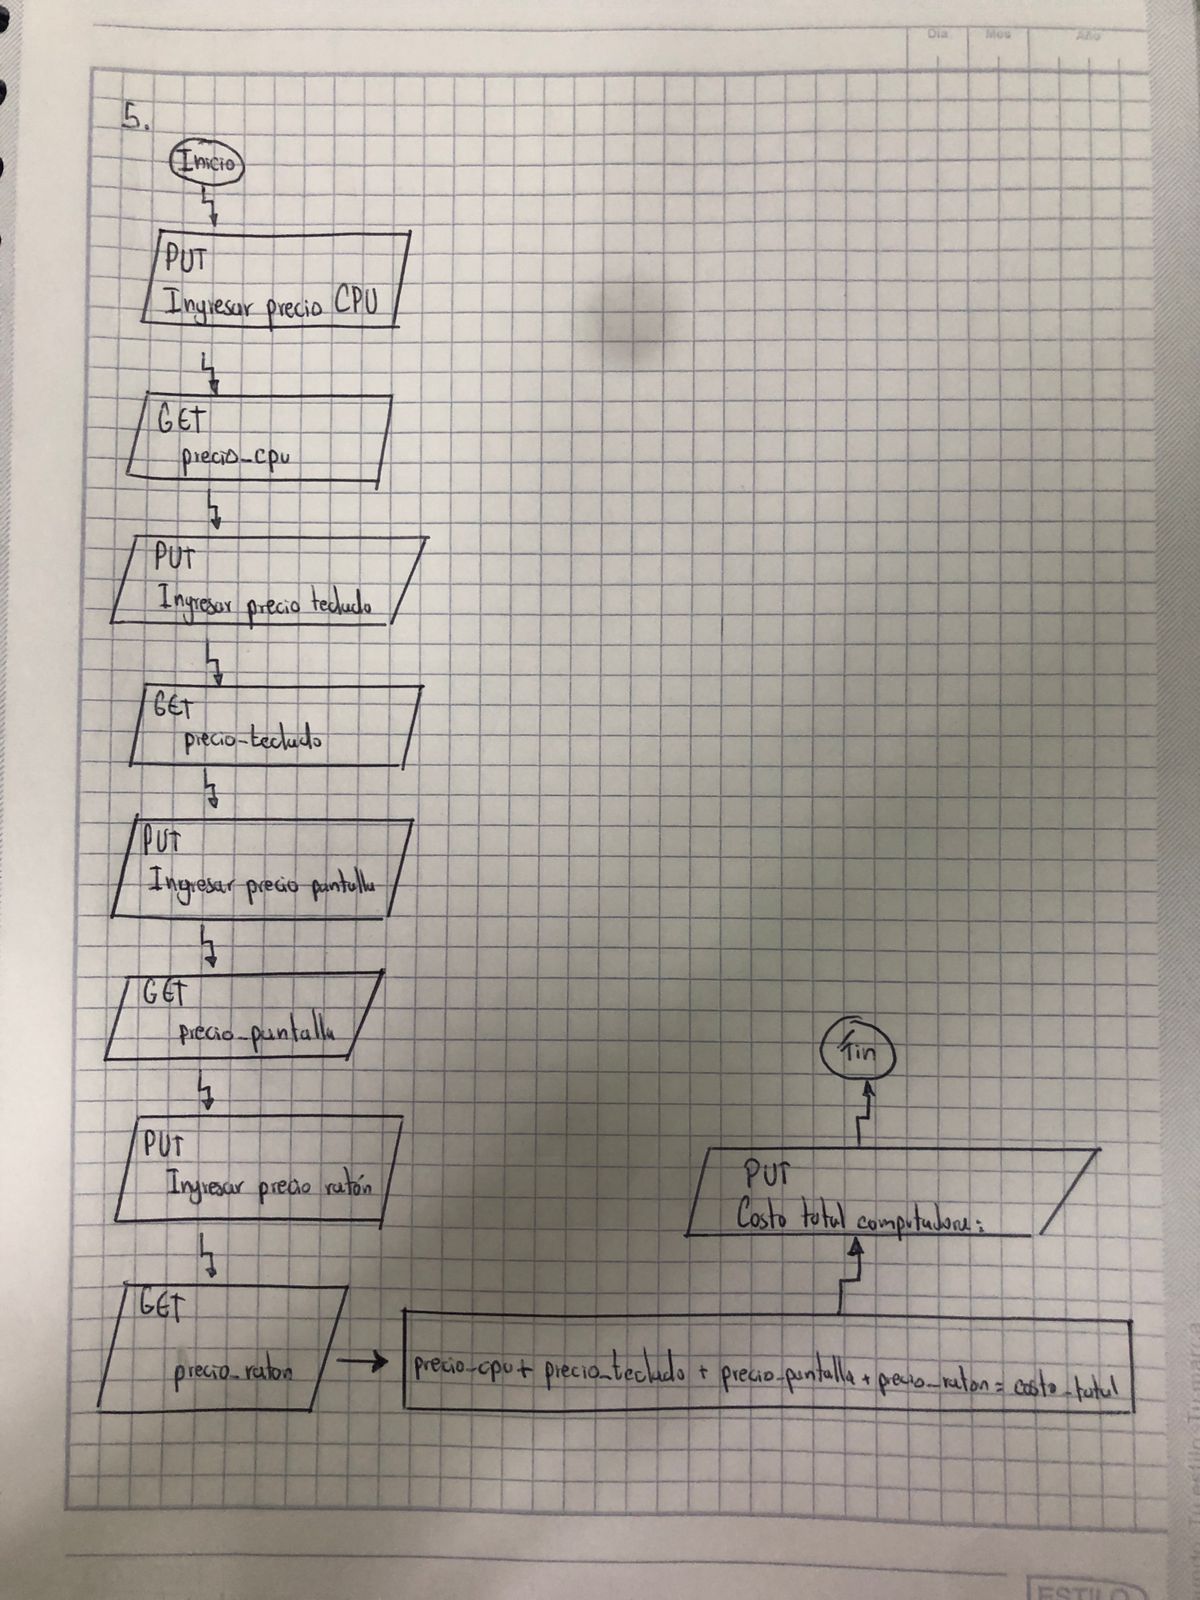 Dia Mes Año
5.
Inicio
PUT
Ingresar precio CPU
GET
precio_cpu
PUT
Ingresar precio teclado
GET
precio_teclado
PUT
Ingresar precio pantalla
GET
precio_pantalla
PUT
Ingresar precio ratón
GET
precio_raton
precio_cpu + precio_teclado + precio_pantalla + precio_raton = costo_total
PUT
Costo total computadora:
Fin
ESTILO